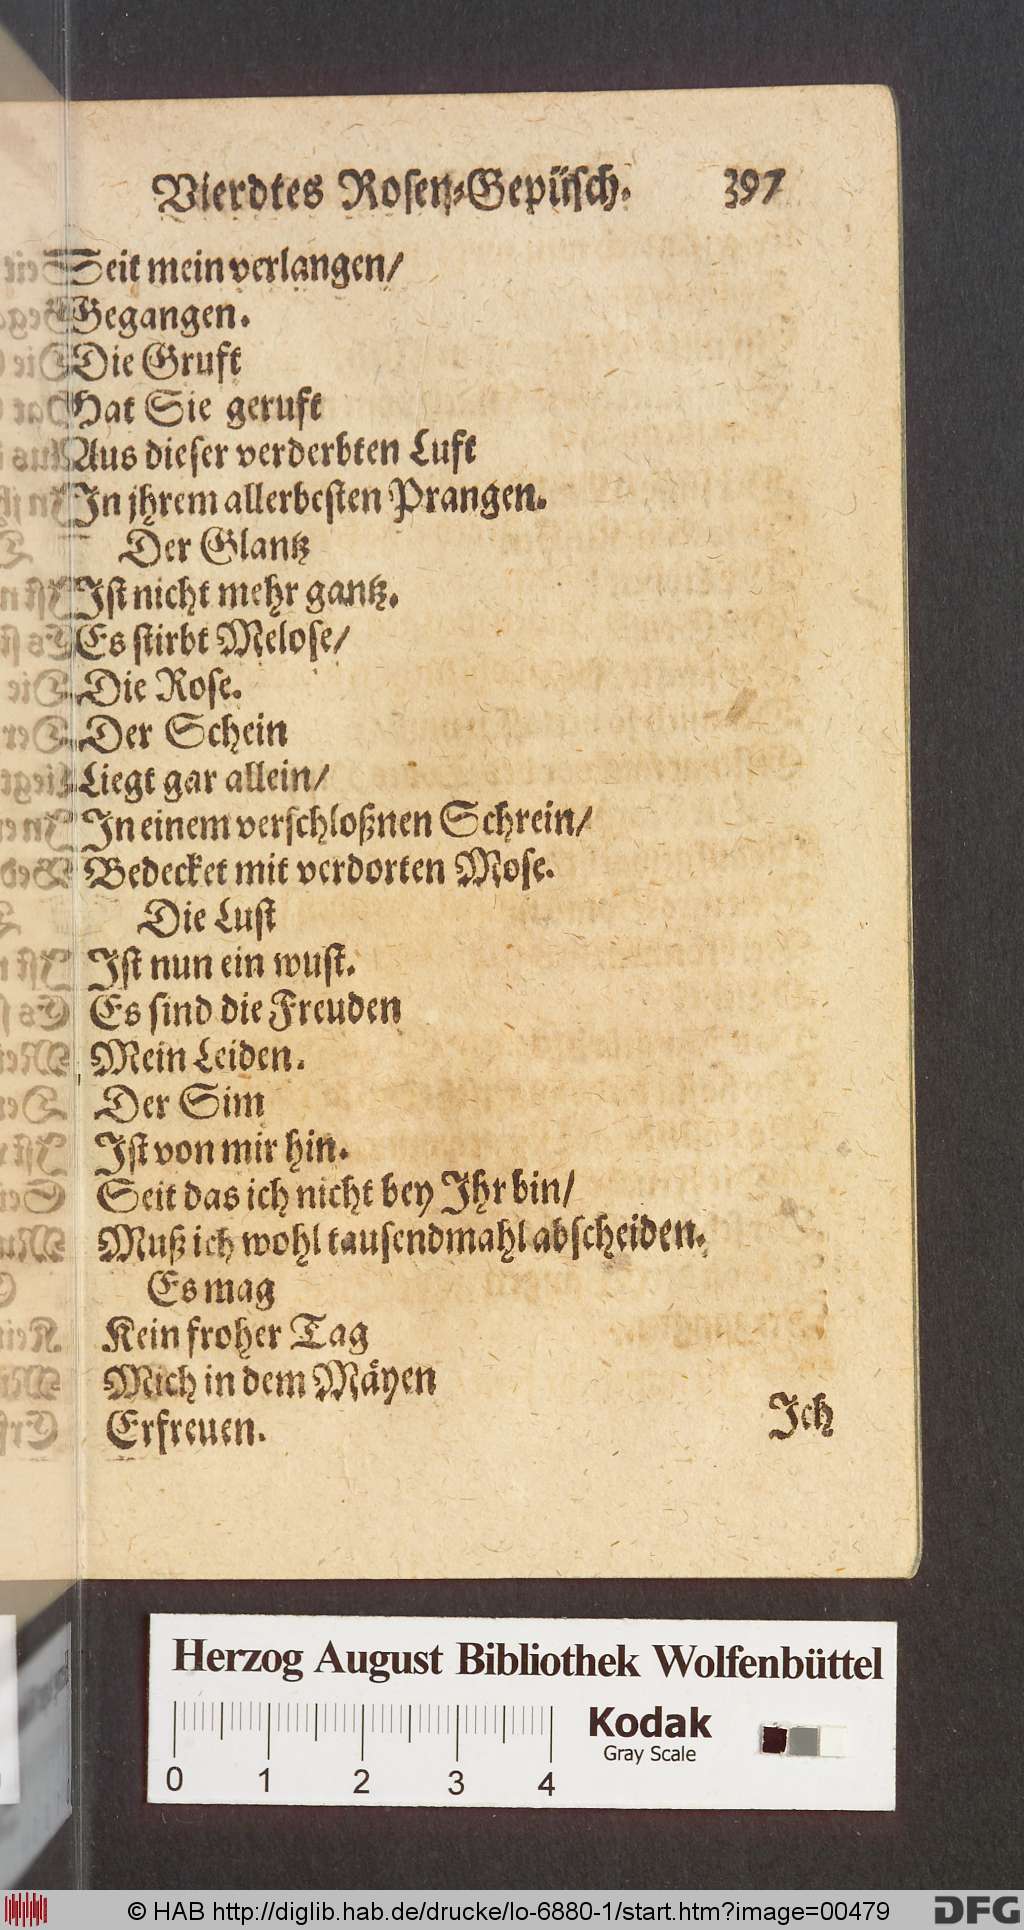 Vierdtes Rosen-Gepüsch. 397
Seit mein verlangen/
Gegangen.
Die Gruft
Hat Sie geruft
Aus dieser verderbten Luft
In jhrem allerbesten Prangen.
Der Glantz
Ist nicht mehr gantz.
Es stirbt Melose/
Die Rose.
Der Schein
Liegt gar allein/
In einem verschloßnen Schrein/
Bedecket mit verdorten Mose.
Die Lust
Ist nun ein wust.
Es sind die Freuden
Mein Leiden.
Der Sim
Ist von mir hin.
Seit das ich nicht bey Ihr bin/
Muß ich wohl tausendmahl abscheiden.
Es mag
Kein froher Tag
Mich in dem Mäyen
Erfreuen.
Ich
Herzog August Bibliothek Wolfenbüttel
Kodak
Gray Scale
0 1 2 3 4
© HAB http://diglib.hab.de/drucke/lo-6880-1/start.htm?image=00479
DFG